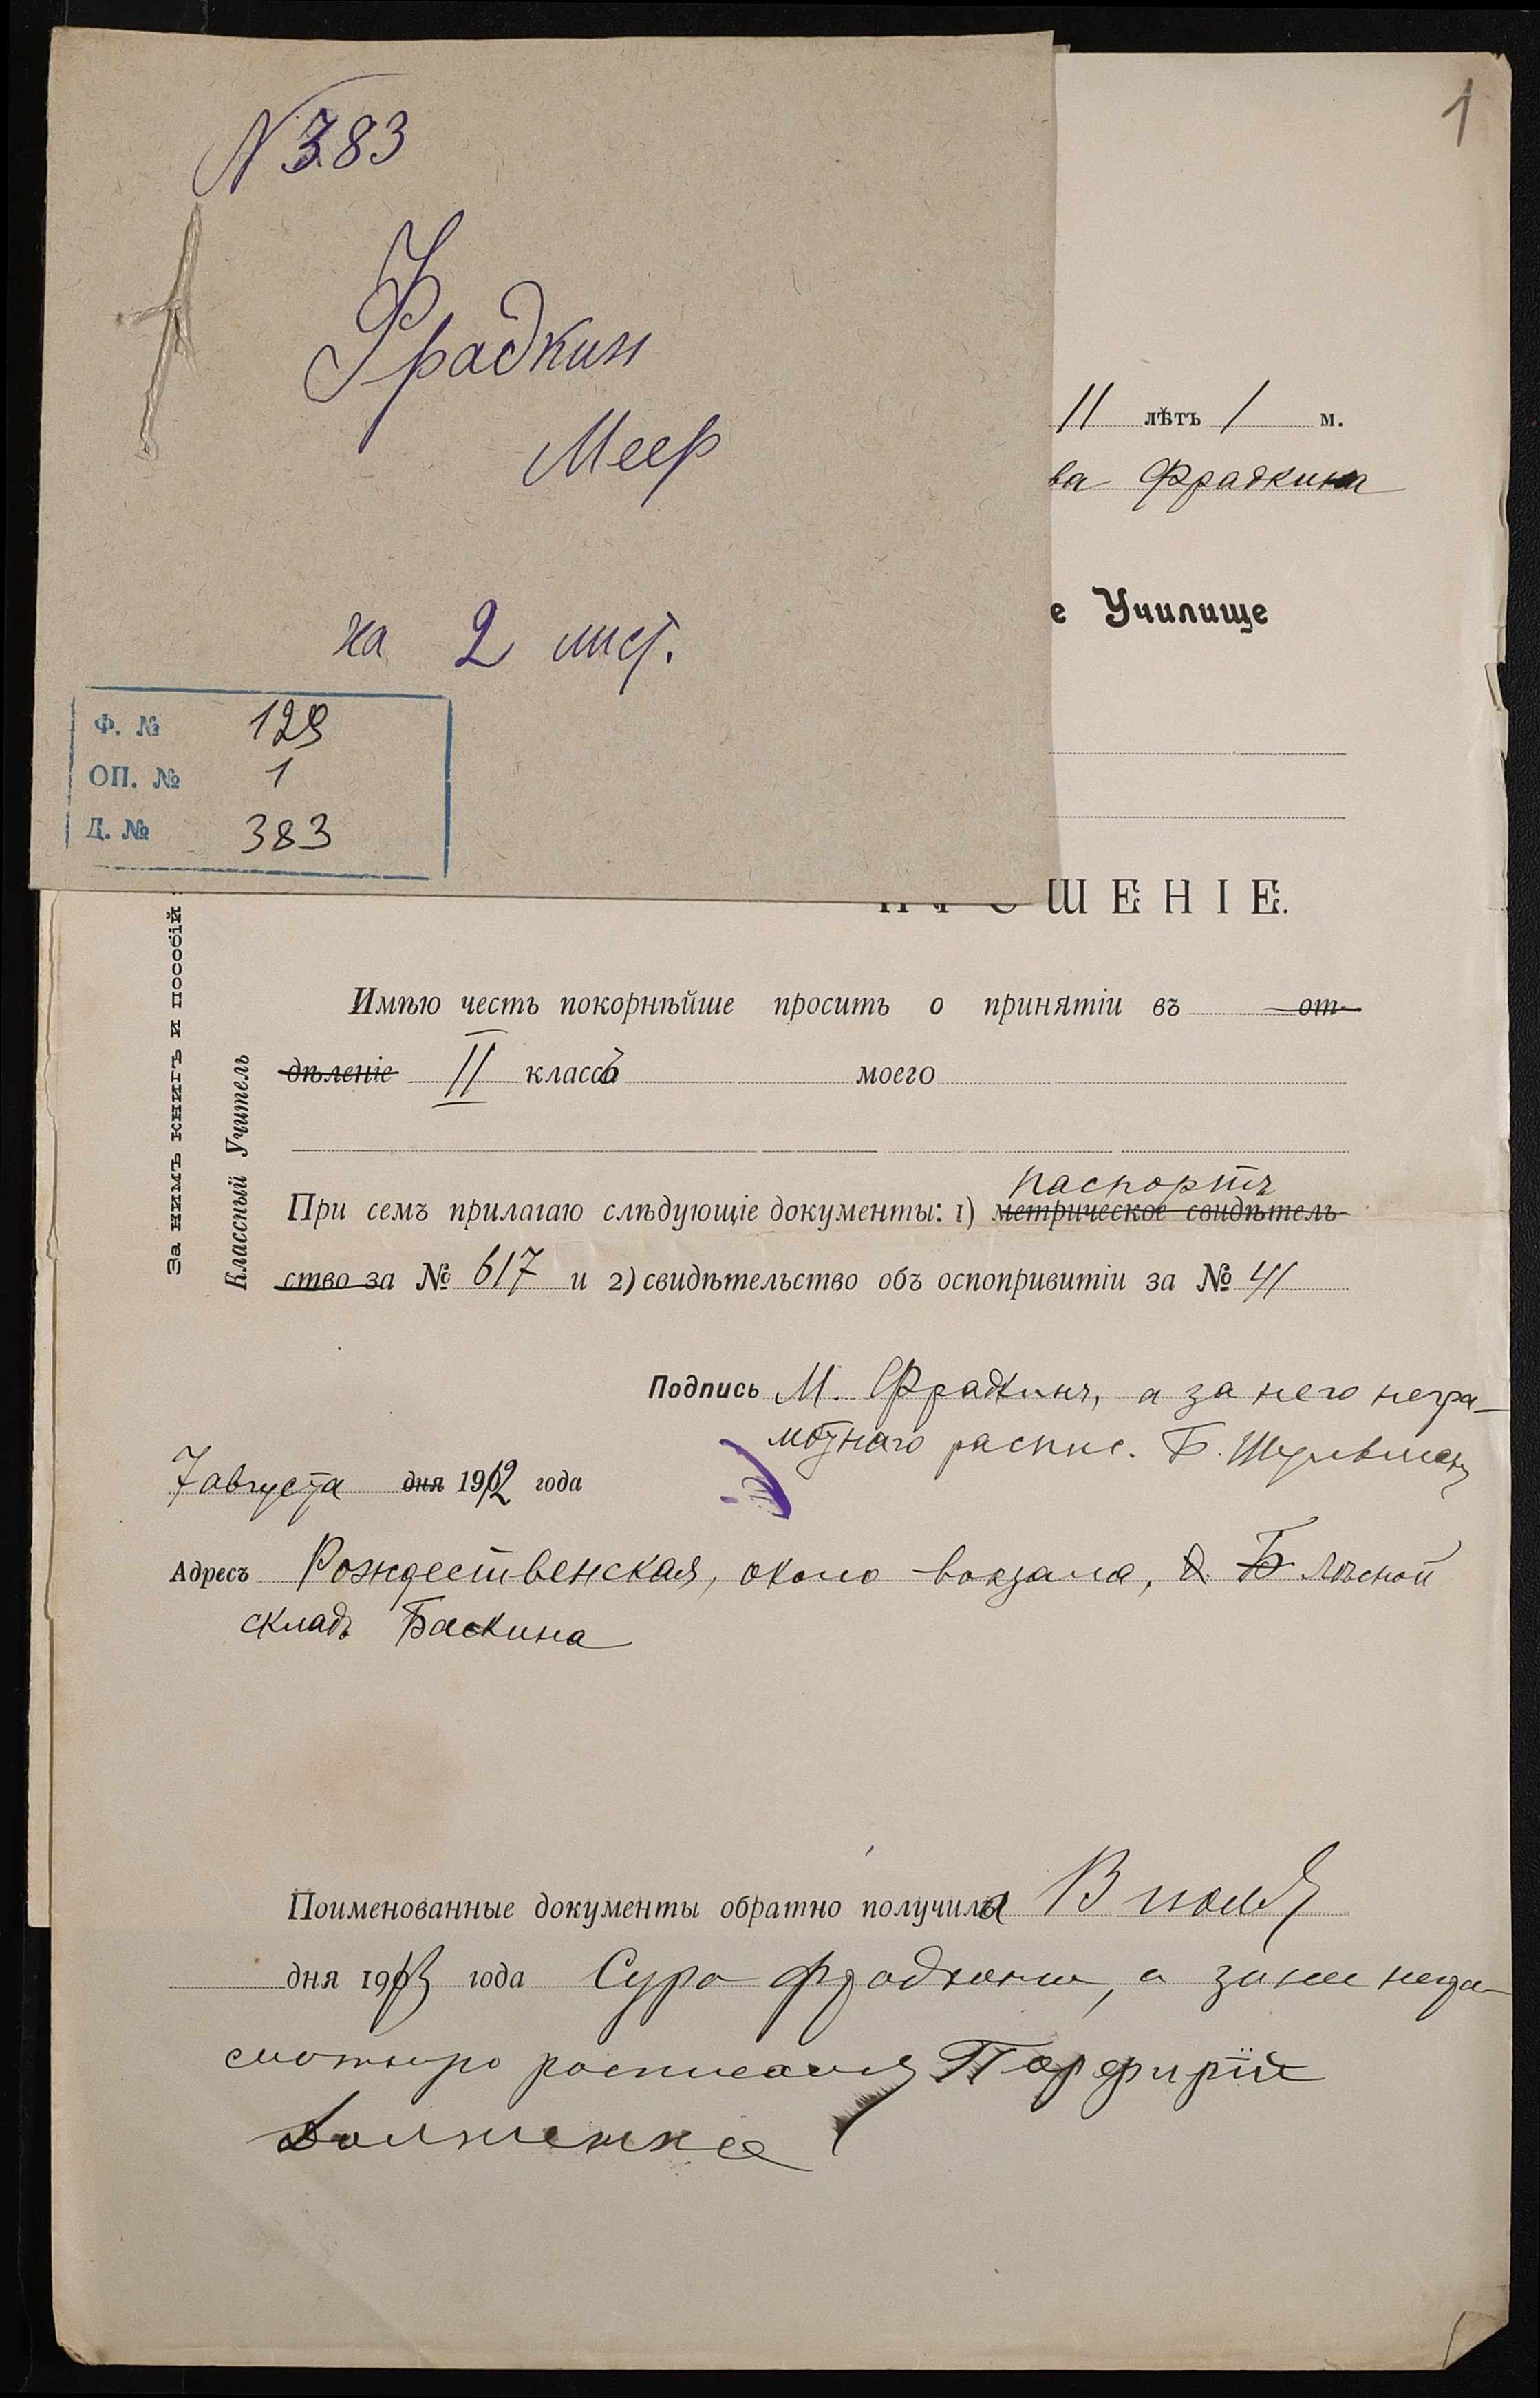 N 383
Фрадкин
Меер
на 2 лист.
Ф. № 129
ОП. № 1
Д. № 383
1
11 лѣтъ 1 м.
ва Фрадкина
е Училище
ПРОШЕНІЕ.
За нимъ книгъ и пособій
Классный Учитель
Имѣю честь покорнѣйше просить о принятіи въ от-
дѣленіе II классъ моего
паспортъ
При семъ прилагаю слѣдующіе документы: 1) метрическое свидѣтель-
ство за № 617 и 2) свидѣтельство объ оспопривитіи за № 41
Подпись М. Фрадкинъ, а за него негра-
мотнаго распис. Б.
7 августа дня 1912 года
Адресъ Рождественская, около вокзала, д. Б Лѣсной
складъ Баскина
Поименованные документы обратно получила В июля
дня 1913 года Сура Фрадкина, а за нее негра-
мотную росписался Порфирій